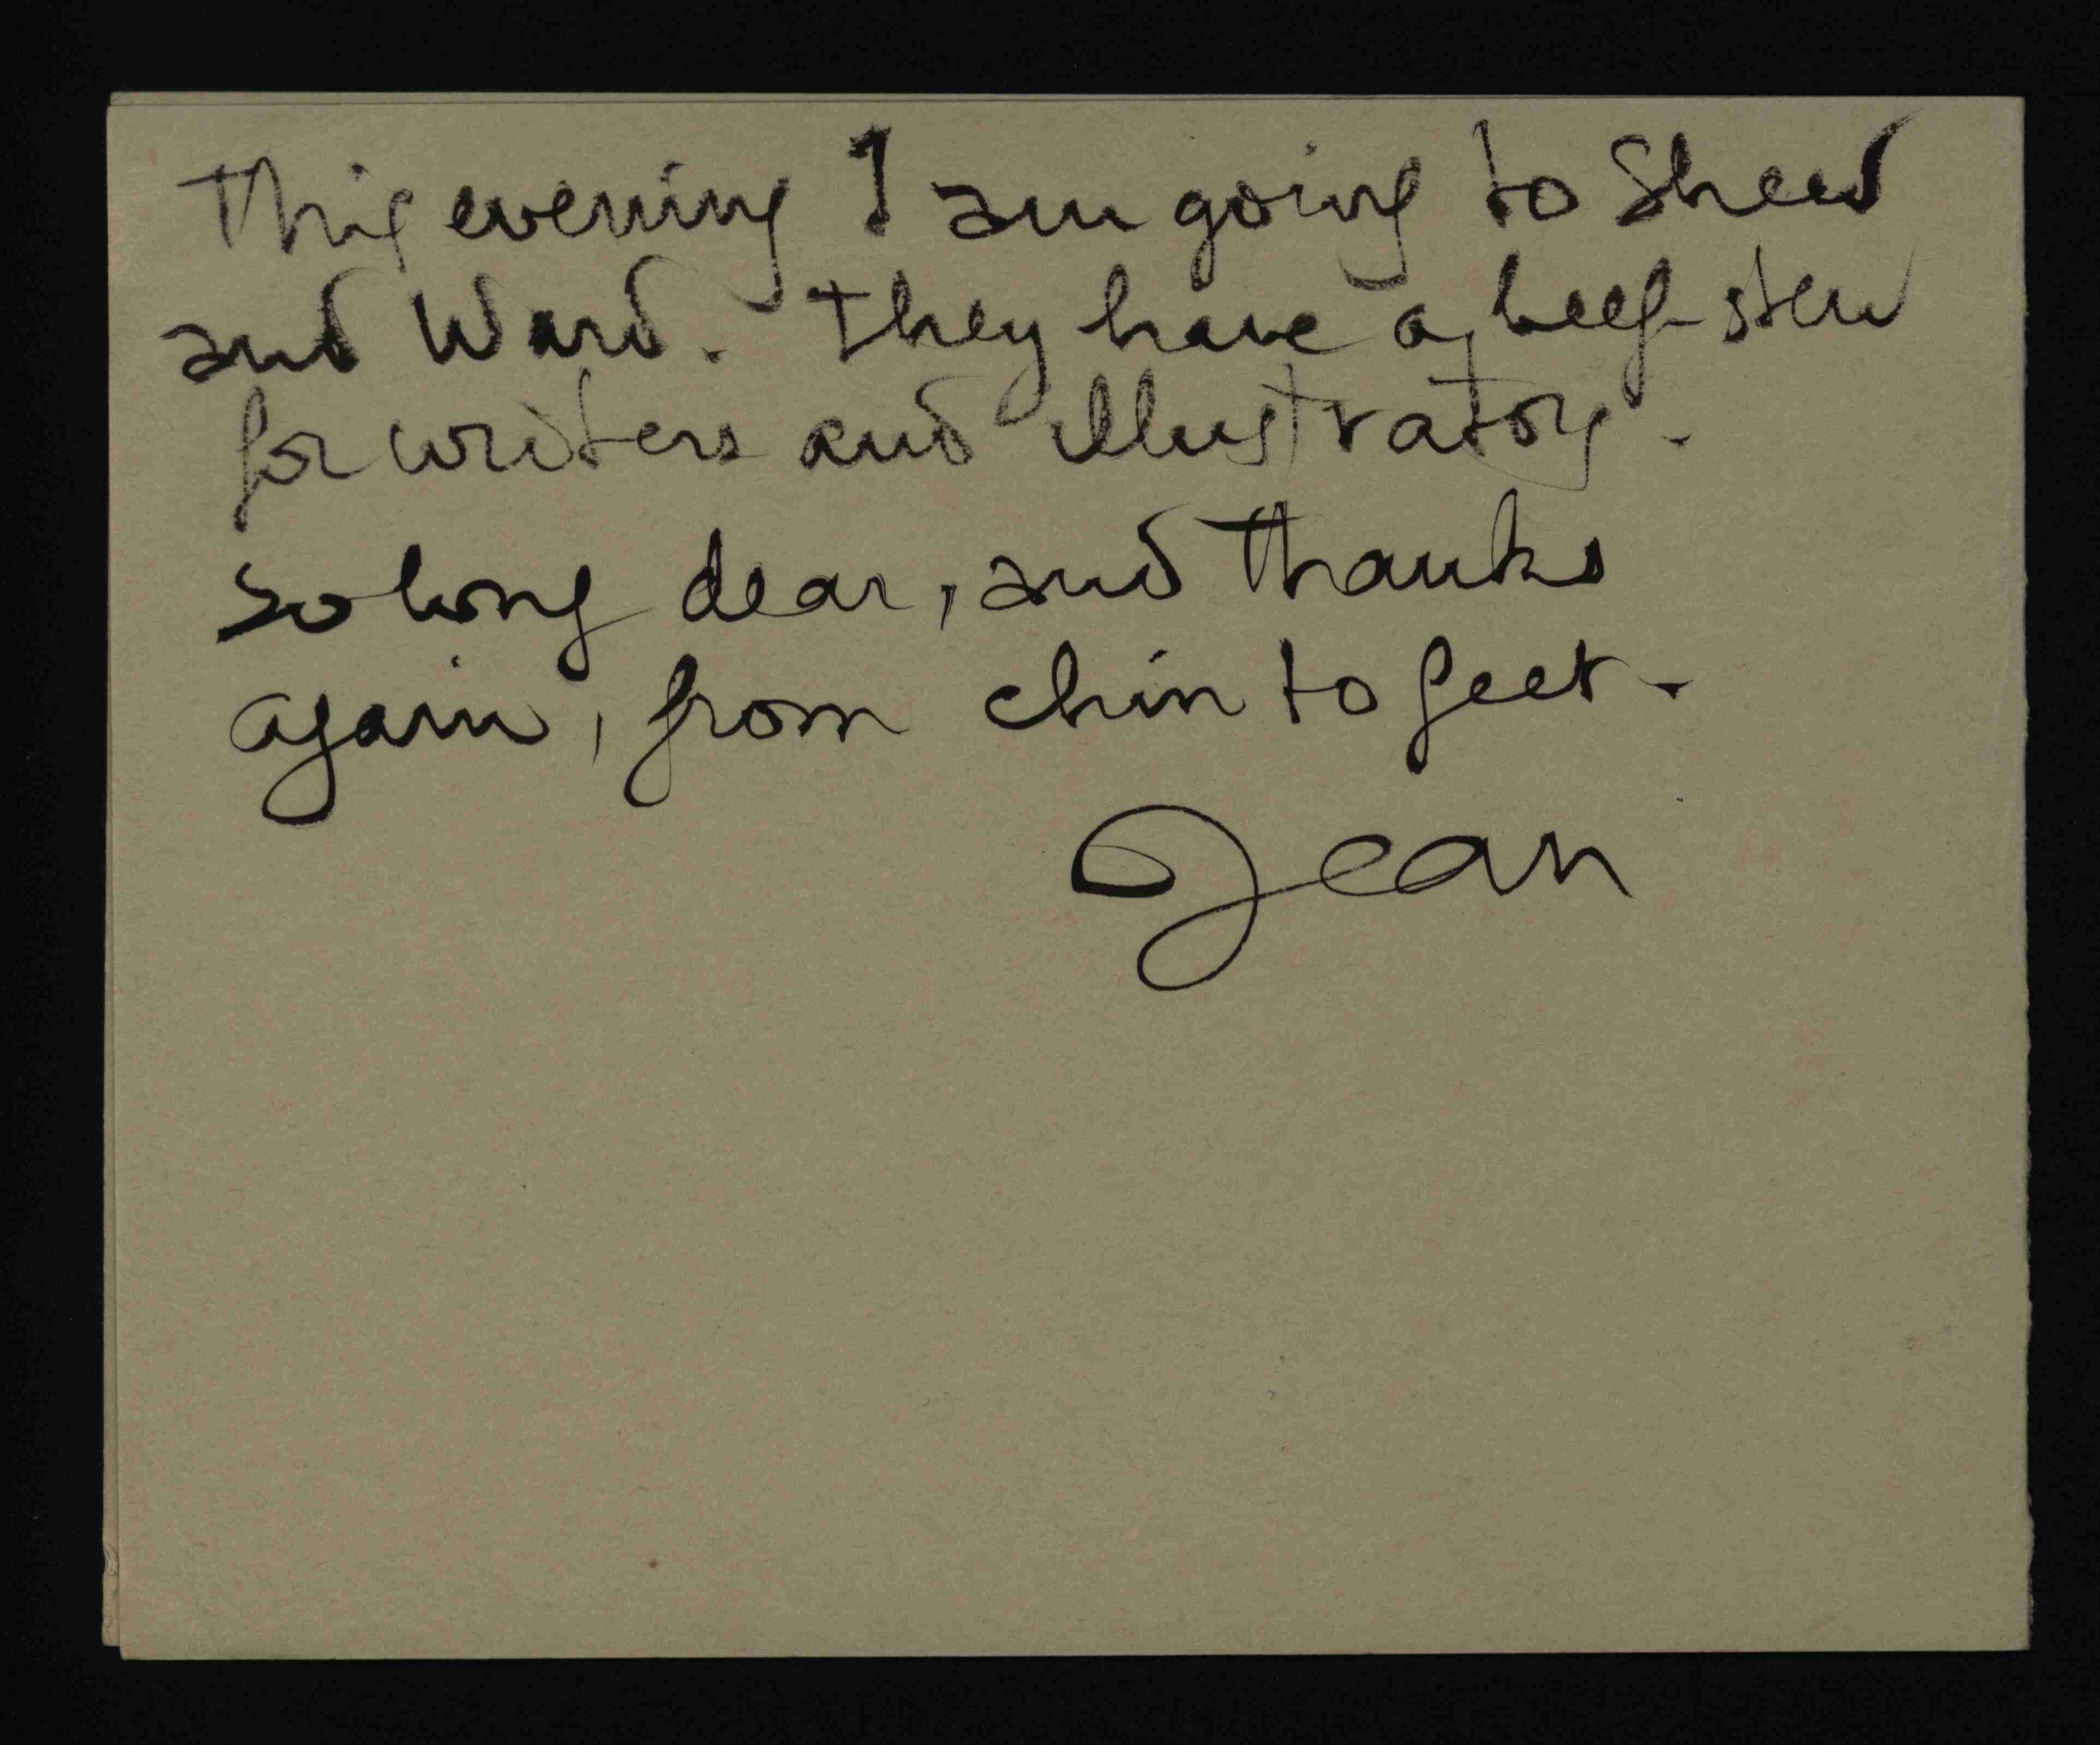 This evening I am going to Sheed
and Ward. They have a beef-stew
for writers and illustrators.
So long dear, and thanks
again, from chin to feet.
Jean